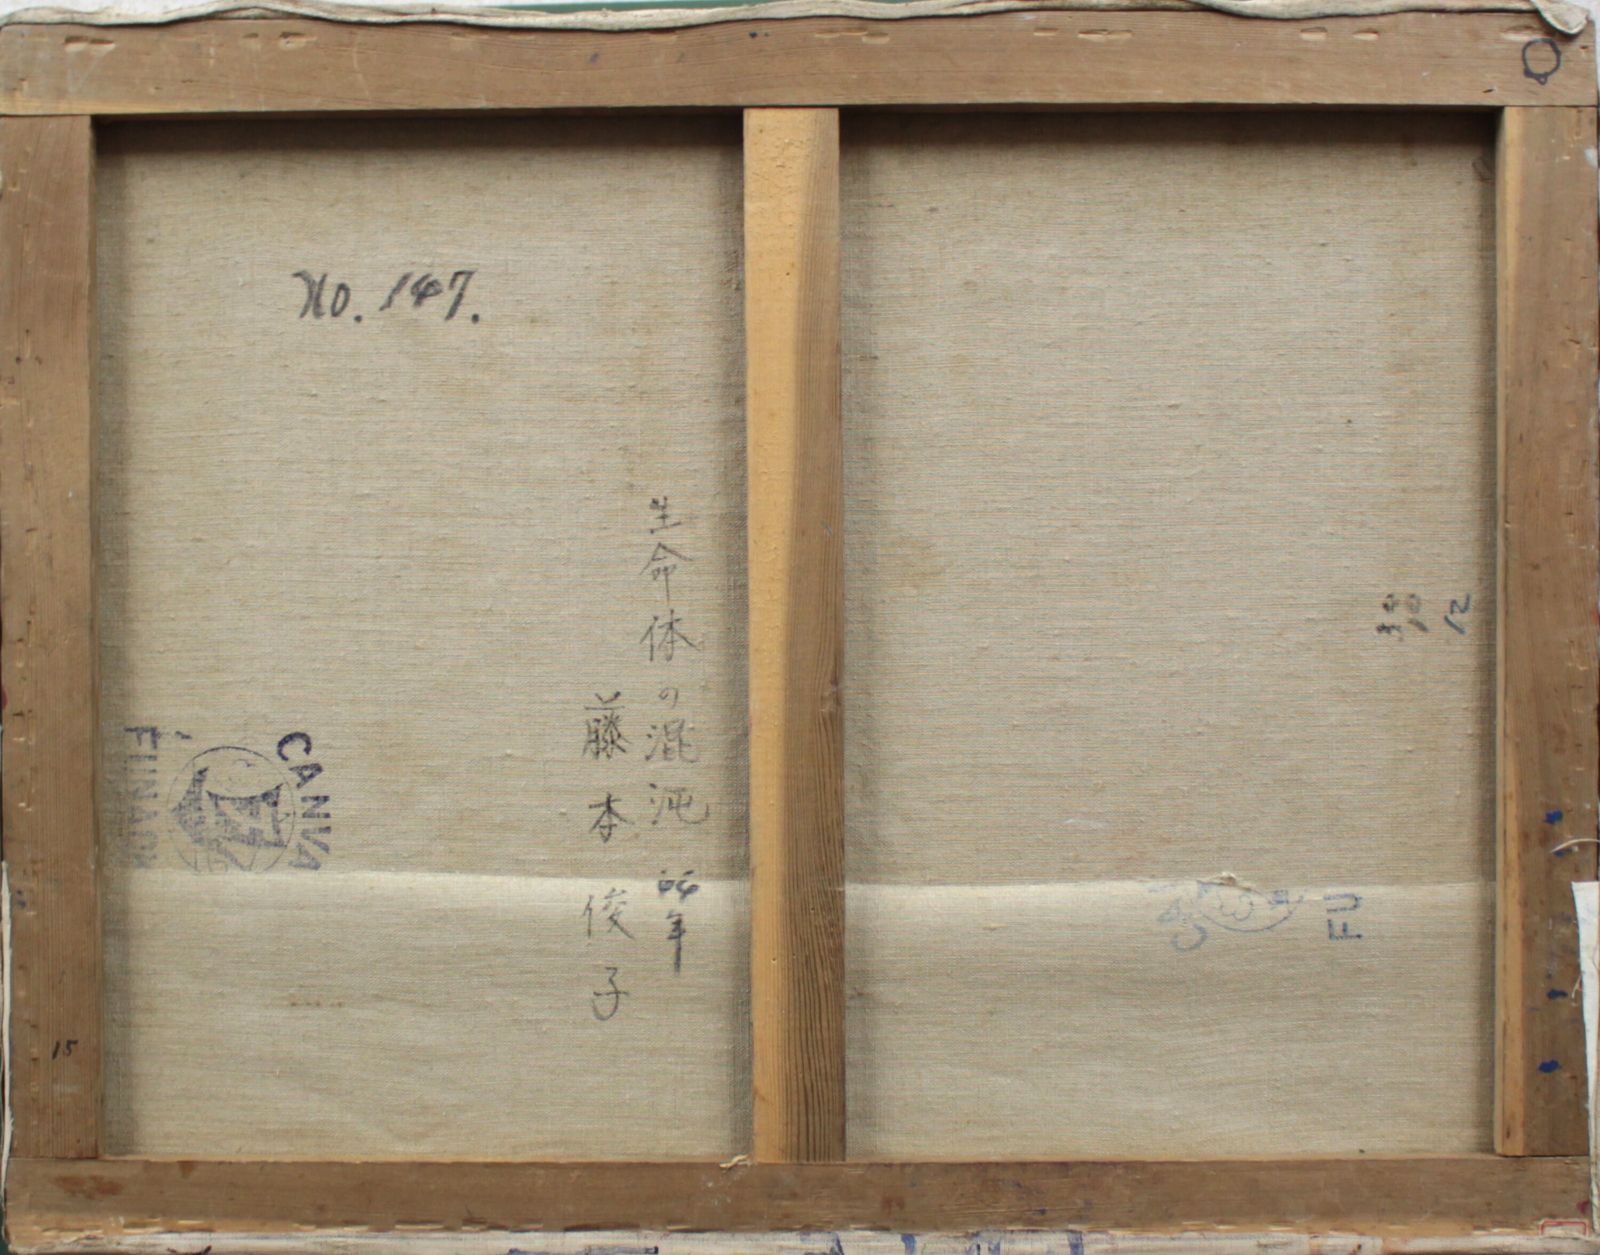 No. 147.
生命体の混沌 '64年
藤本俊子
CANVA
FUNAO
FU
12
15